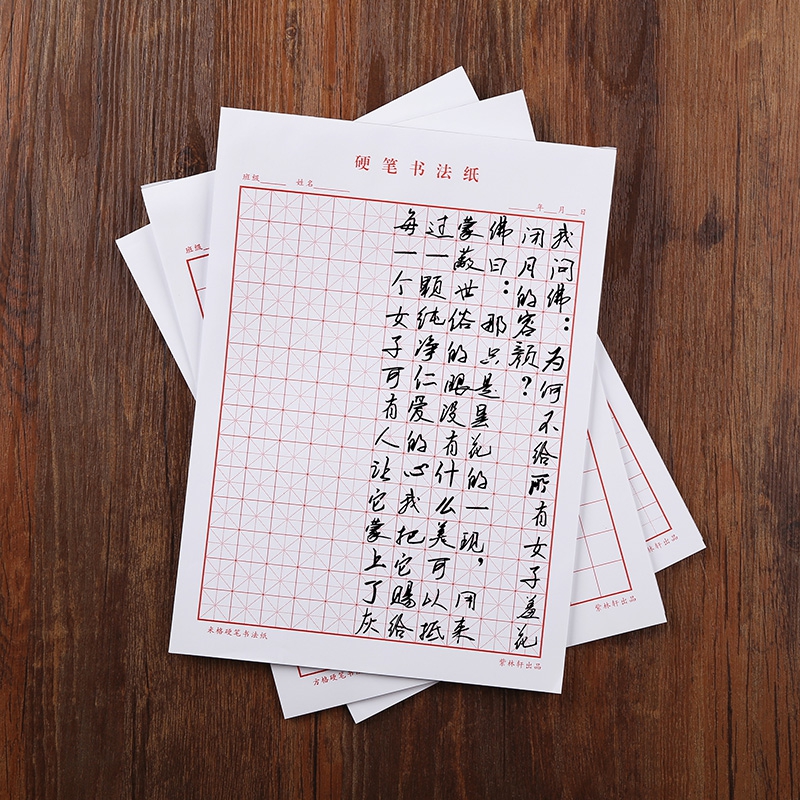 硬笔书法纸
班级____ 姓名____
____年__月__日
我问佛：为何不给所有女子羞花
闭月的容颜？
佛曰：那只是昙花的一现，用来
蒙蔽世俗的眼没有什么美可以抵
过一颗纯净仁爱的心我把它赐给
每一个女子可有人让它蒙上了灰
米格硬笔书法纸
紫林轩出品
班级
方格硬笔书
紫林轩出品
林轩出品